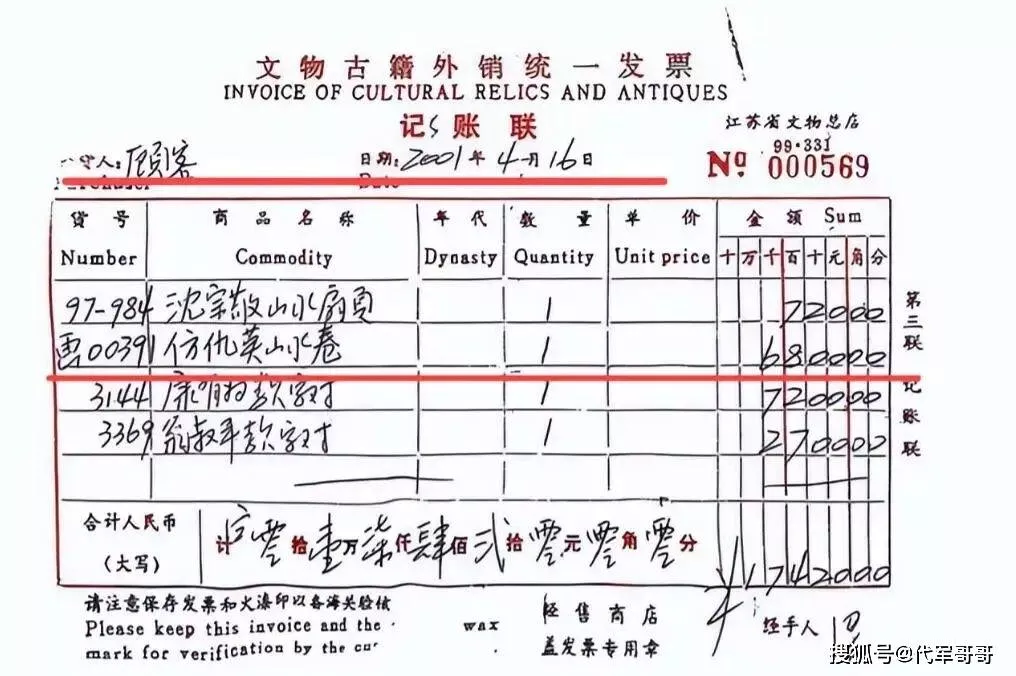 文物古籍外销统一发票
INVOICE OF CULTURAL RELICS AND ANTIQUES
记账联
江苏省文物总店
99·331
Nº 000569
人:顾客
日期:2001年4月16日
Date
货号 商品名称 年代 数量 单价 金额 Sum
Number Commodity Dynasty Quantity Unit price 十万千百十元角分
97-984 沈宗敬山水扇页 1 72000
画0039 仿仇英山水卷 1 680000
3144 款字对 1 720000
3369 翁叔平款字对 1 270000
第三联 记账联
合计人民币
(大写)
计 零拾壹万柒仟肆佰贰拾零元零角零分
1742000
请注意保存发票和火漆印以备海关验核
Please keep this invoice and the wax
mark for verification by the cus
经售商店
盖发票专用章
经手人
搜狐号@代军哥哥